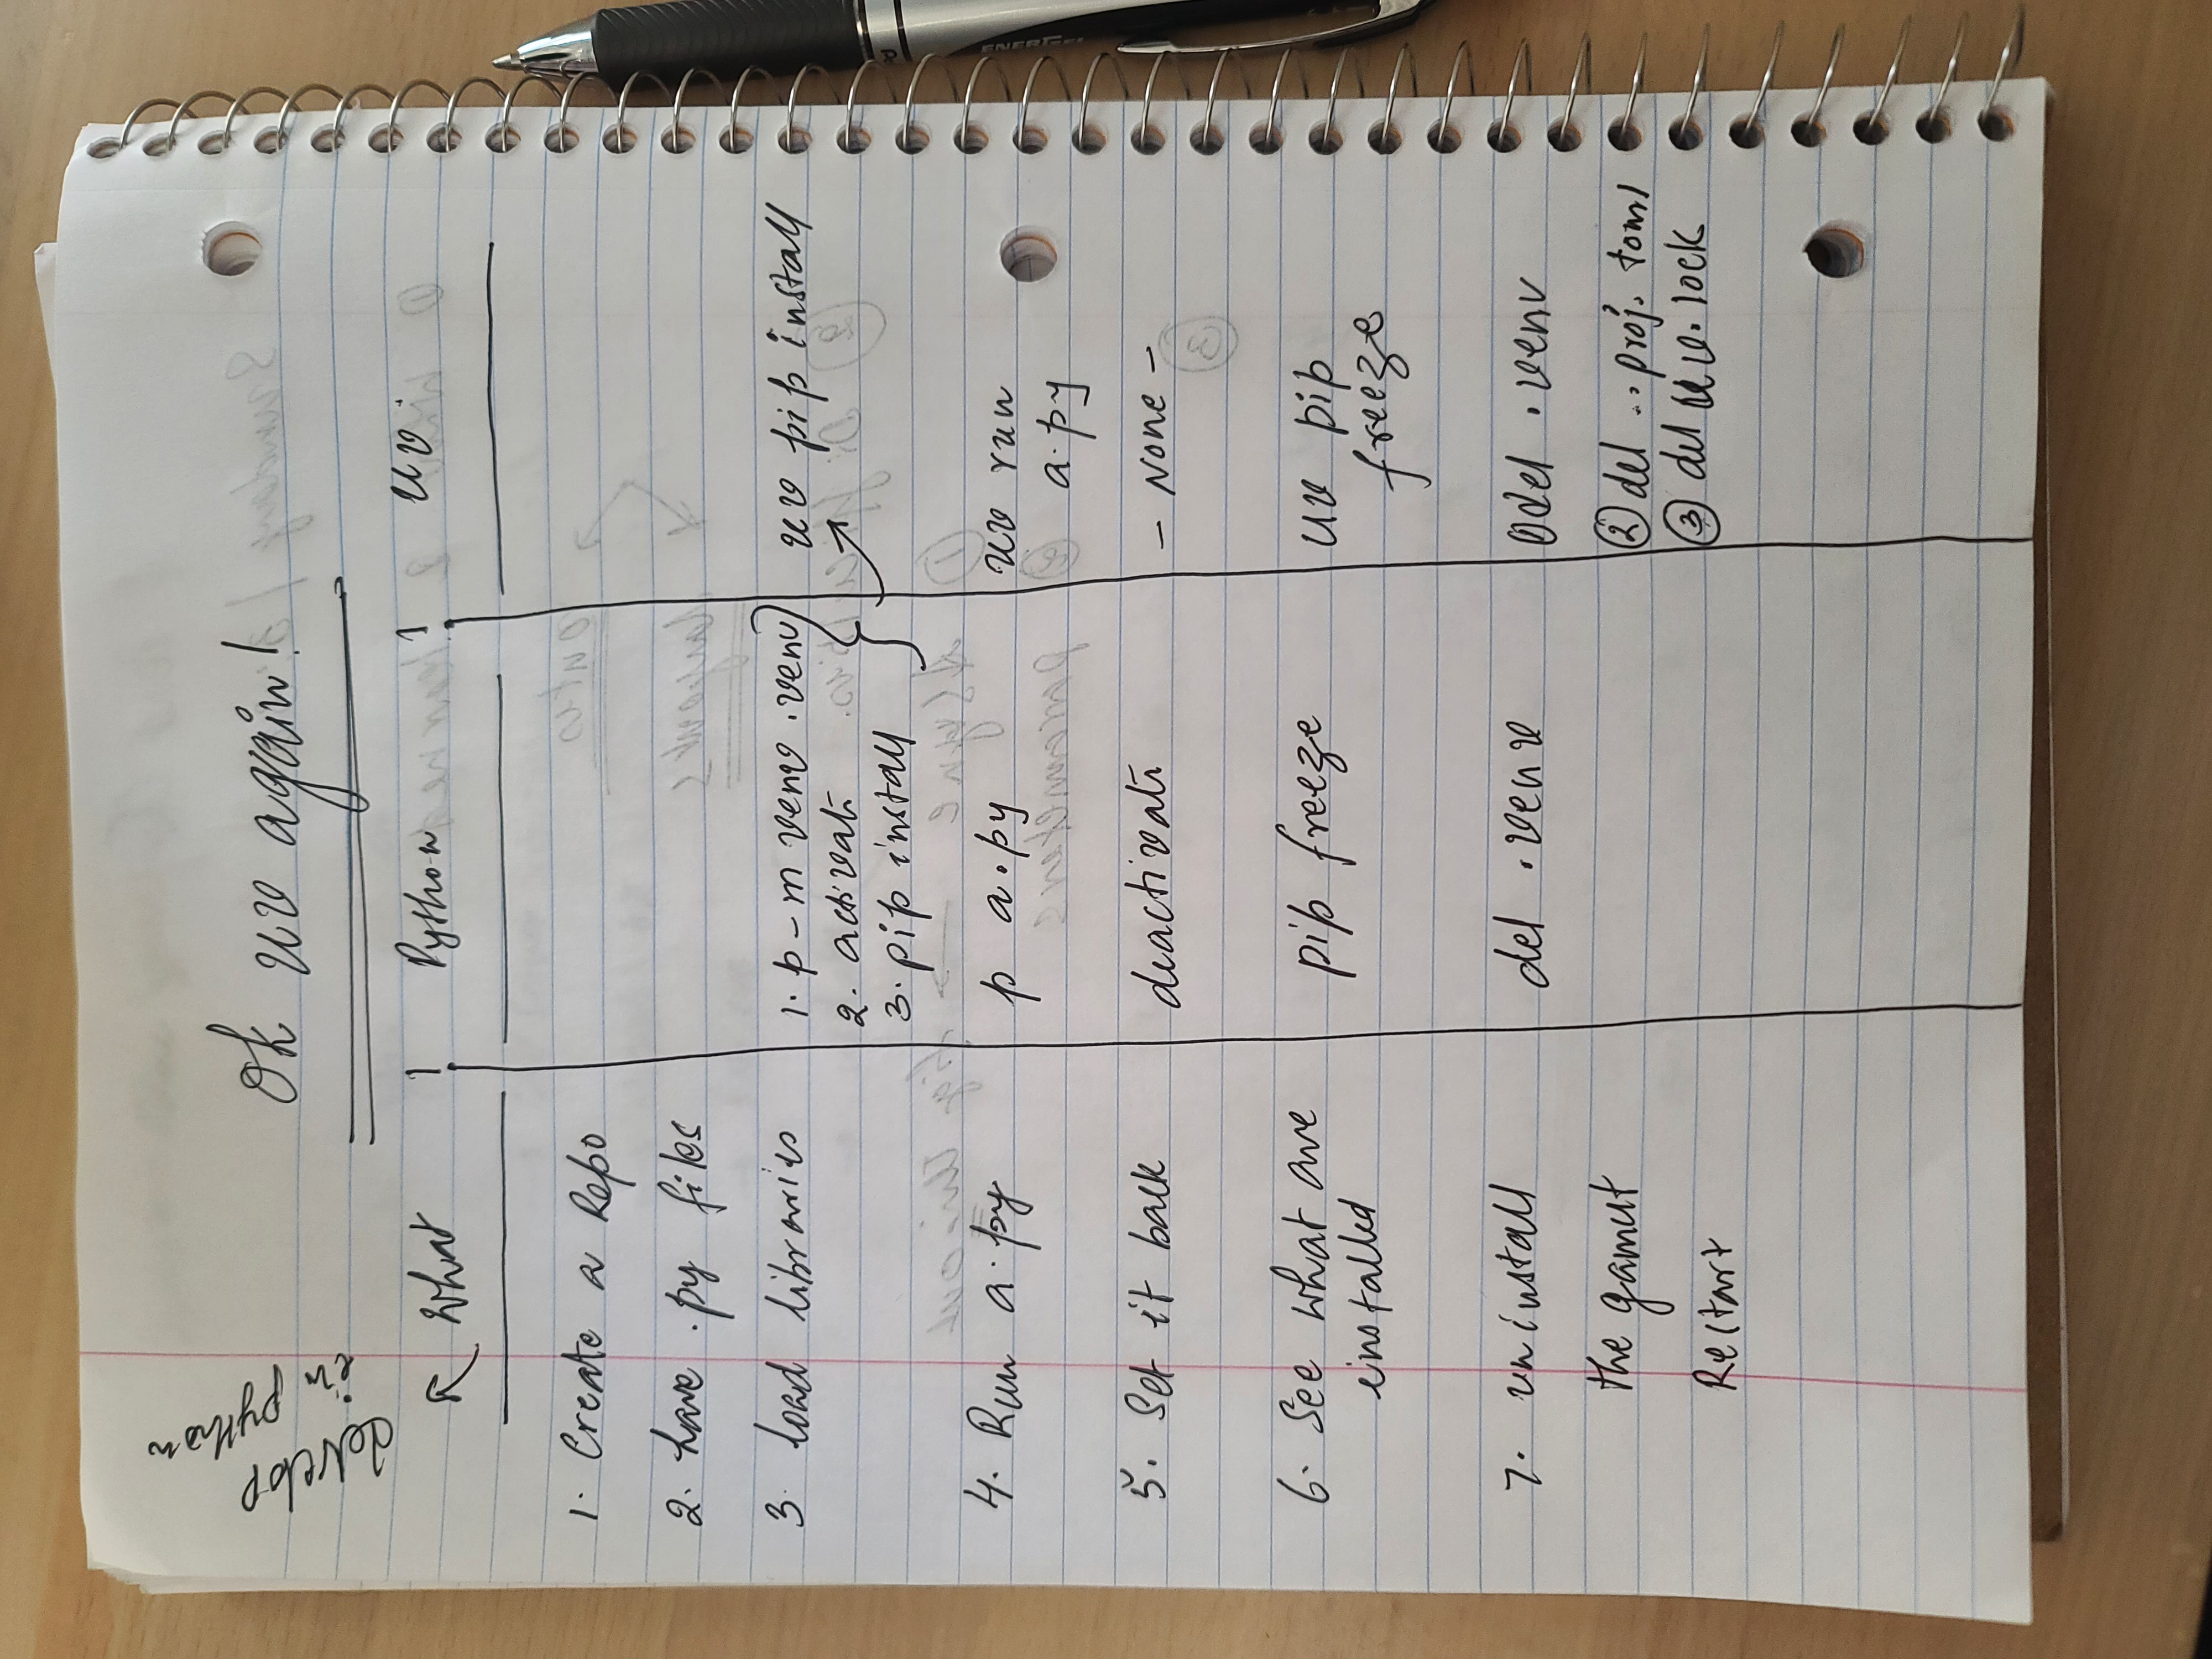 Ok uv again!
Develop
in
python
What | Python | uv
1. Create a Repo
2. have .py files
3. load libraries 1. p -m venv .venv uv pip install
2. activate
3. pip install
4. Run a.py p a.py uv run
a.py
5. Set it back deactivate - None -
6. See what are pip freeze uv pip
installed freeze
7. uninstall del .venv ①del .venv
the gamut ② del .. proj. toml
Restart ③ del uv.lock
ENERGEL